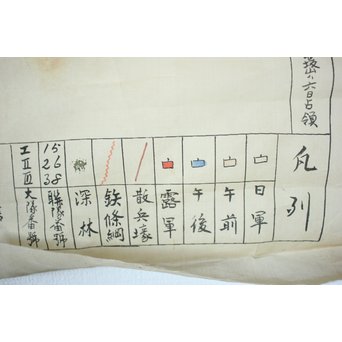 凡例
日軍
午前
午後
露軍
散兵壕
鉄條網
深林
15
26
38
聯隊番號
I II III
大隊番號
占領